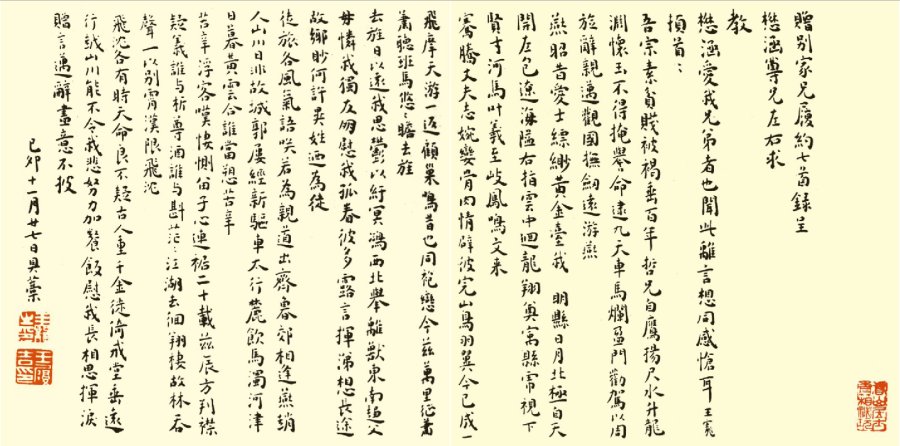 贈別家兄履約七首錄呈
懋涵尊兄左右求
教
懋涵愛我兄弟者也聞此離言想同感愴耳王寵
頓首
吾宗素貧賤被褐垂百年哲兄自鷹揚尺水升龍
淵懷玉不得掩譽命逮九天車馬爛盈門勸駕以周
旋辭親邁觀國撫劍遠游燕
燕昭昔愛士縹緲黃金臺我 明縣日月北極自天
開左包遼海隘右指雲中迴龍翔奠寓縣虎視下
賢才河馬叶羲至岐鳳鳴文來
騫騰丈夫志婉孌骨肉情辟彼完山鳥羽翼今已成一
飛摩天游一返顧巢鳴昔也同袍戀今茲萬里征蕭
蕭聽班馬悠悠瞻去旌
去旌日以遠我思鬱以紆冥鴻西北舉離獸東南趨父
母憐我獨友朋慰我孤春彼多露言揮涕想長途
故鄉眇何許異姓迺為徒
徒旅各風氣語咲若為親道出齊魯郊相逢燕趙
人山川日非故城郭屢經新驅車太行麓飲馬濁河津
日暮黃雲合誰當愬苦辛
苦辛浮客嘆悽惻留子心連裾二十載茲辰方判襟
疑義誰與析尊酒誰與斟茫茫江湖去徊翔棲故林吞
聲一以別霄漢限飛沈
飛沈各有時天命良不疑古人重千金徒倚戒堂垂遠
行越山川能不令我悲努力加餐飯慰我長相思揮淚
贈言邁辭盡意不披
己卯十一月廿七日具藁